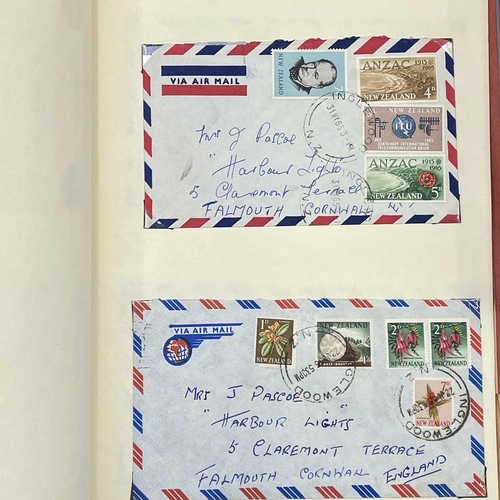 VIA AIR MAIL
NEW ZEALAND
ANZAC 1915 1965
4D
NEW ZEALAND
ITU
CENTENARY INTERNATIONAL
TELECOMMUNICATION UNION
NEW ZEALAND
ANZAC 1915 1965
5D
NEW ZEALAND
INGLEWOOD
N.Z.
Mrs J Pascoe
"Harbour Lights"
5 Claremont Terrace
FALMOUTH CORNWALL
VIA AIR MAIL
1D
NEW ZEALAND
NEW ZEALAND
2D
NEW ZEALAND
2D
NEW ZEALAND
NEW ZEALAND
INGLEWOOD
INGLEWOOD
MRS J PASCOE
"HARBOUR LIGHTS"
5 CLAREMONT TERRACE
FALMOUTH CORNWALL ENGLAND